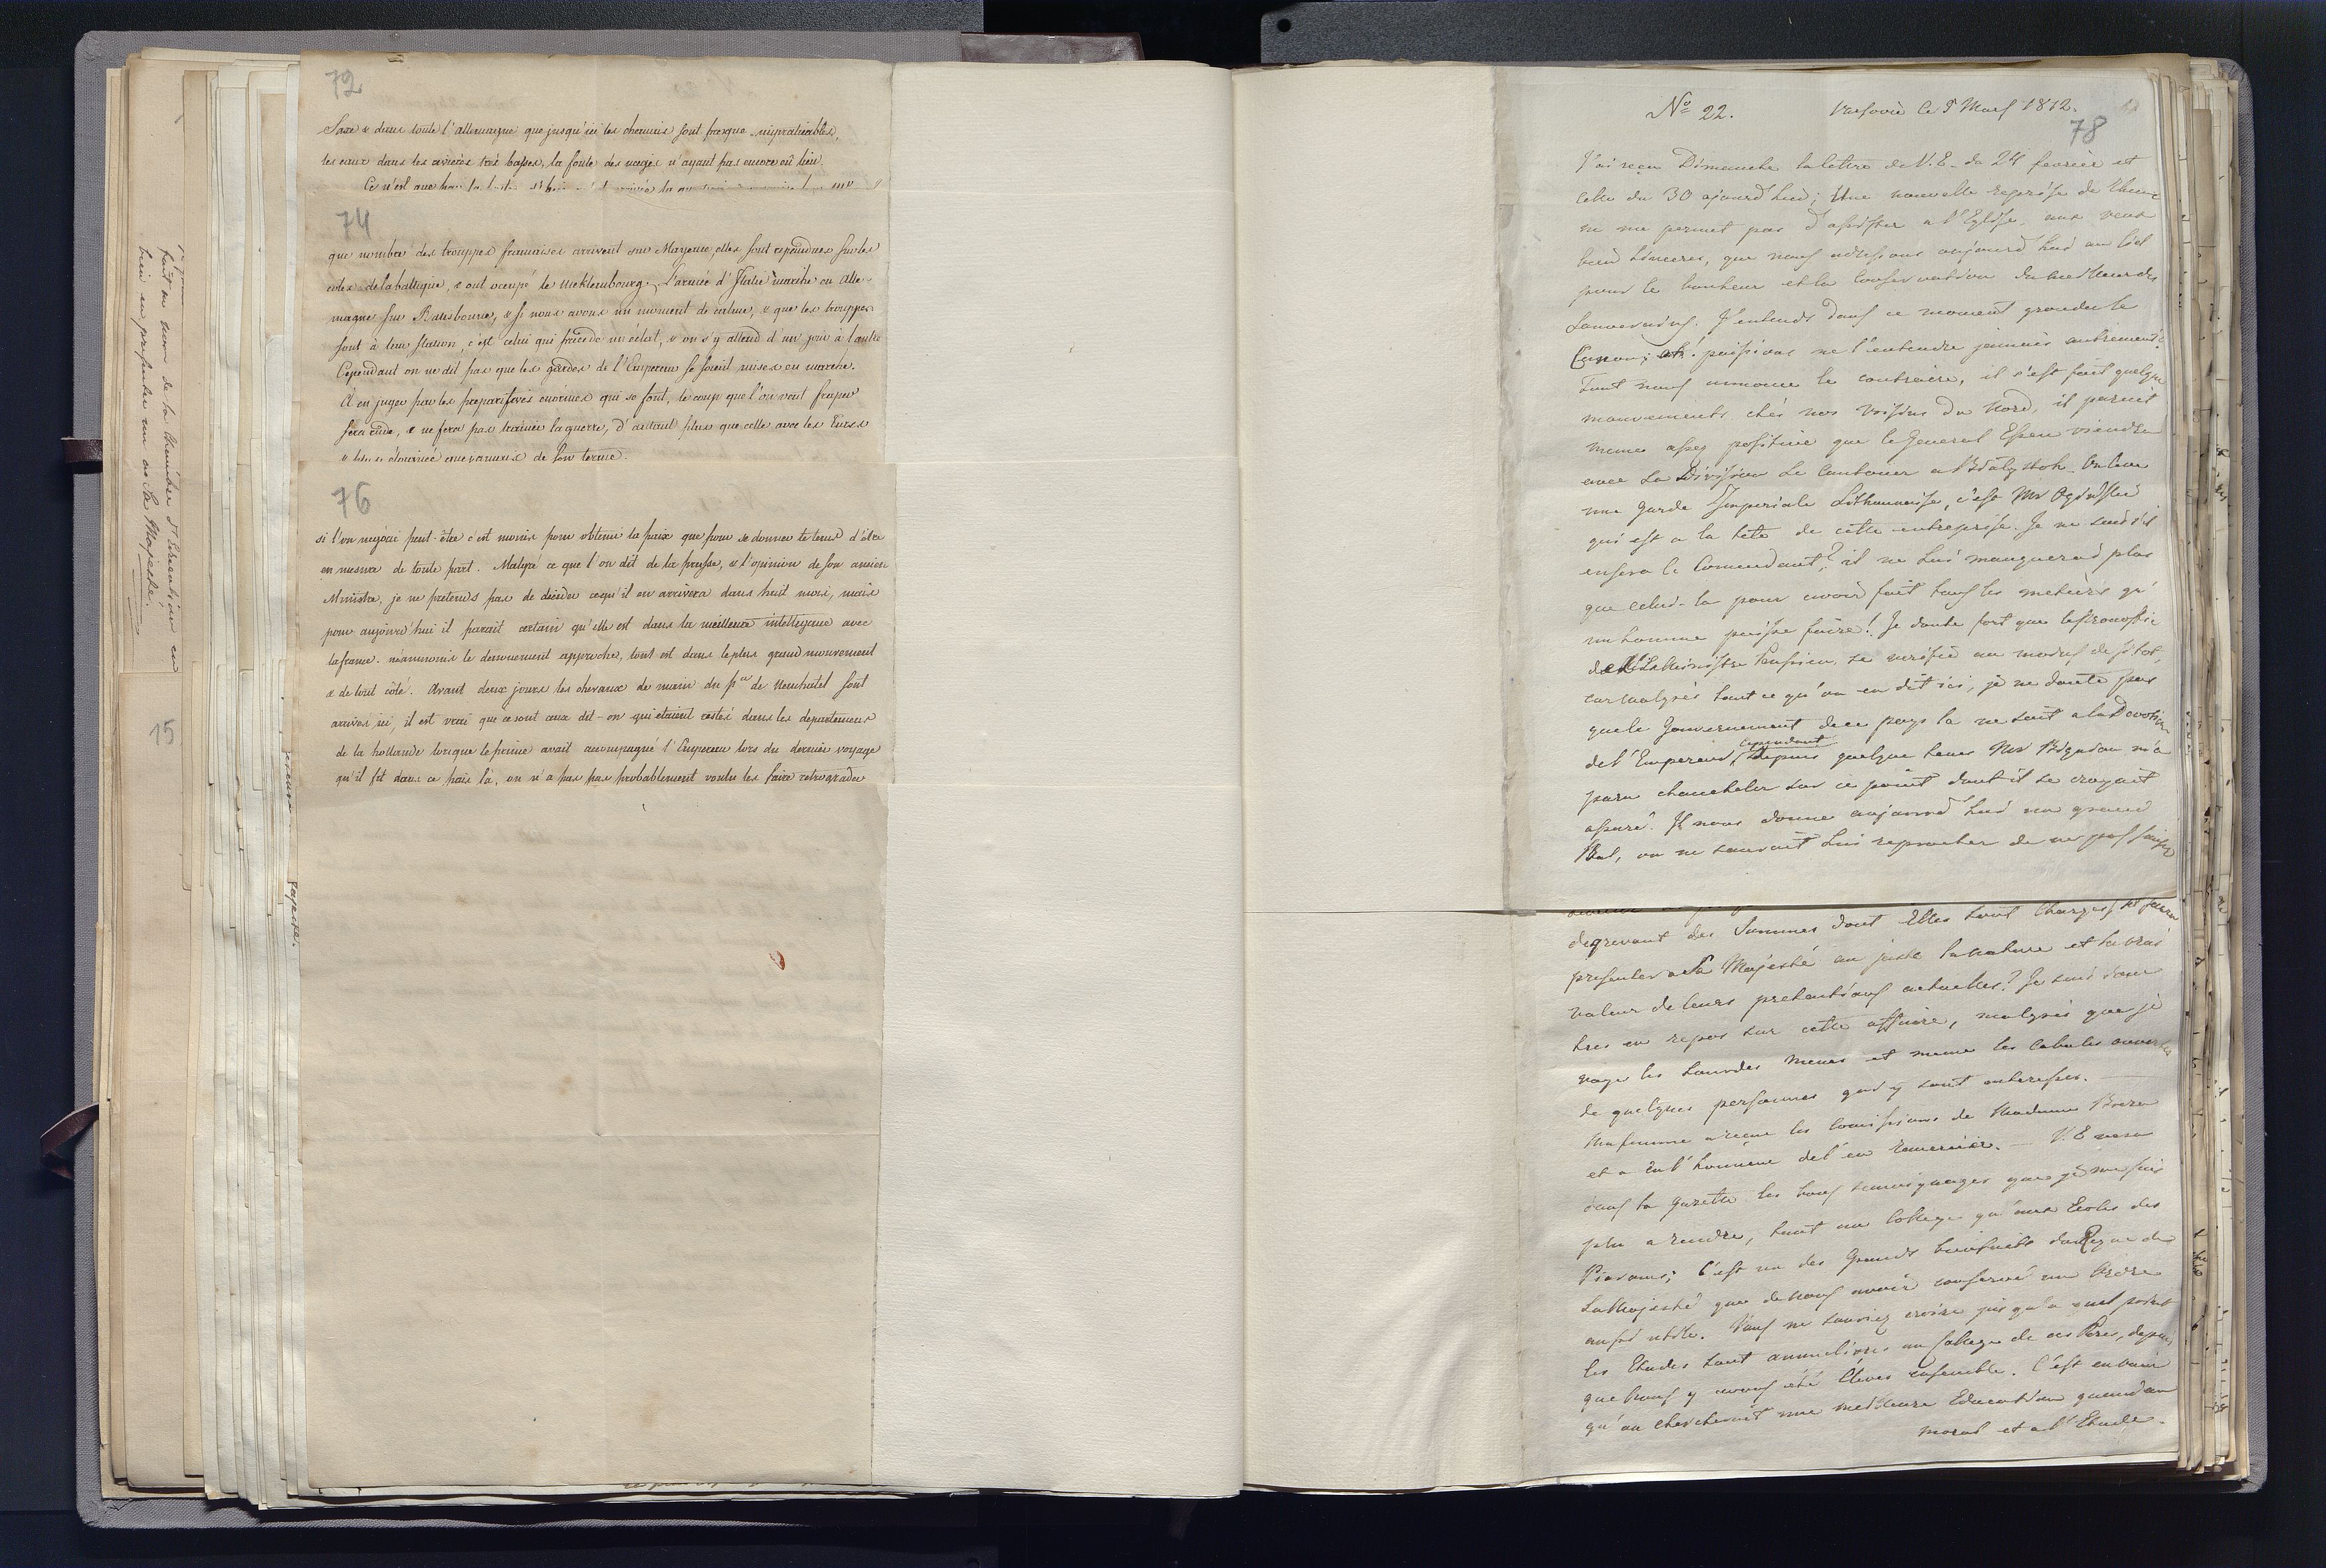 72
Saxe & dans toute l'allemagne que jusqu'ici les chemins sont presque impraticables,
les eaux dans les rivieres très basses, la fonte des neiges n'ayant pas encore eû lieu.
Ce n'est que
74
que nombre des trouppes françaises arrivent sur Mayence, elles sont repandues sur les
cotes de la baltique, & ont occupé le Mecklembourg. L'armée d'Italie marche en Alle-
magne, sur Ratisbonne, & si nous avons un moment de calme, & que les trouppes
sont à leur station, c'est celui qui précède un éclat, & on s'y attend d'un jour à l'autre
Cependant on ne dit pas que les gardes de l'Empereur se soient mises en marche.
A en juger par les preparatives enormes qui se font, le coup que l'on veut fraper
sera rude, & ne fera pas trainer la guerre, d'autant plus que celle avec les Turcs
est plus eloignée que jamais de son terme.
76
si l'on negocie peut-être c'est moins pour obtenir la paix que pour se donner le tems d'être
en mesure de toute part. Malgré ce que l'on dit de la prusse, & l'opinion de son ancien
Ministre, je ne pretends pas de decider ce qu'il en arrivera dans huit mois, mais
pour aujourd'hui il parait certain qu'elle est dans la meilleure intelligence avec
la france. néanmoins le denouement approche, tout est dans le plus grand mouvement
& de tout côté. Avant deux jours les chevaux de main du pce de Neuchatel sont
arrivés ici, il est vrai que ce sont ceux dit-on qui etaient restés dans les departemens
de la hollande lorsque le prince avait accompagné l'Empereur lors du dernier voyage
qu'il fit dans ce païs là, on n'a pas pas probablement voulu les faire retrograder
15
faite au nom de la Chambre d'Education en
bien en presenter un a Sa Majesté.
Majesté.
No 22. Varsovie le 8 Mars 1812.
78
J'ai reçu Dimanche la lettre de V. E. du 24 fevrier et
celle du 30 ajourd'hui; Une nouvelle reprise de
ne me permet pas d'assister a l'Eglise, aux veux
bien sinceres, que nous adressons aujourd'hui au Ciel
pour le bonheur et la conservation du meilleur des
Souverains. J'entends dans ce moment gronder le
Canon; ah! puissions ne l'entendre jamais autrement!
Tout nous annonce le contraire, il s'est fait quelque
mouvements chés nos voisins du Nord, il parait
meme assez positive que le General Essen viendra
avec sa Division se Cantoner a Białystok. On leve
une Garde Imperiale Lithuanaise, c'est Mr Oginski
qui est a la tete de cette entreprise. Je ne sais s'il
ensera le Comendant? il ne lui manquerait plus
que celui-la pour avoir fait tous les metiers qu'
un homme puisse faire! Je doute fort que le pronostic
du Ministre Prussien, se verifie au moins de sitot,
car malgrés tout ce qu'on en dit ici, je ne doute pas
que le Gouvernement de ce pays la ne soit a la Devotion
de l'Empereur, cependant depuis quelque tems Mr Bignon m'a
paru chanceler sur ce point dont il se croyait
assuré. Il nous donne aujourd'hui un grand
Bal, on ne saurait lui reprocher de ne pas
degrevant des Sommes dont Elles sont Chargés,
presenter a Sa Majesté au juste la nature et la vrai
valeur de leurs pretentions actuelles? Je suis donc
tres en repos sur cette affaire, malgrés que je
voye les sourdes menes et meme les Cabales ouvertes
de quelques personnes qui y sont interessés.
Ma femme a reçue les Comissions de Madame Breza
et a eu l'honneur de l'en remercier. — V. E. verra
dans la Gazette les bons temoignages que je me suis
plu a rendre, tant au College qu'aux Ecoles des
Piarons; C'est un des Grands bienfaits du Regne de
Sa Majesté que de nous avoir conservé un Ordre
aussi utile. Vous ne sauriez croire jusqu'a quel point
les Etudes sont ameliorés au College de ces Peres, depuis
que nous y avons été Eleves ensemble. C'est en vain
qu'on chercherait une meilleure Education quand au
moral et a l'Etude.